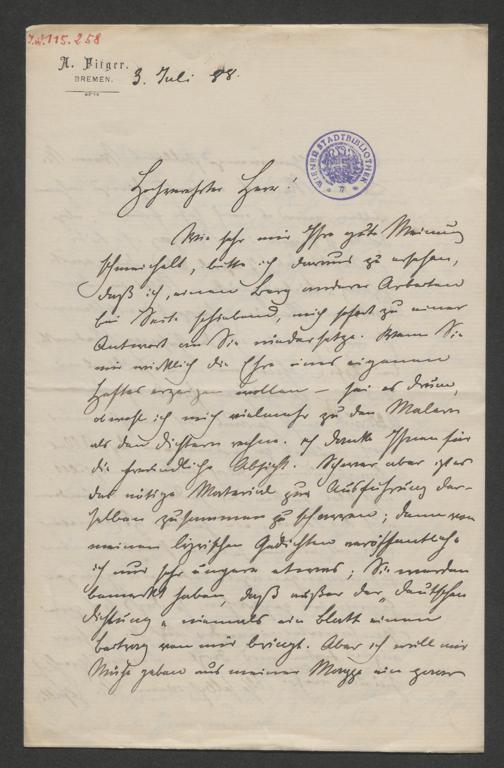 J.N. 115.258
A. Fitger.
BREMEN.
3. Juli 88.
WIENER STADTBIBLIOTHEK
Hochverehrter Herr!
Wie sehr mir Ihre gute Meinung
schmeichelt, bitte ich daraus zu ersehen,
daß ich, einen Berg anderer Arbeiten
bei Seite schiebend, mich sofort zu einer
Antwort an Sie niedersetze. Wenn Sie
mir wirklich die Ehre eines eigenen
Heftes erzeigen wollen – sei es drum,
obwohl ich mich vielmehr zu den Malern
als den Dichtern rechne. Ich danke Ihnen für
die freundliche Absicht. Schwer aber ist es
das nötige Material zur Ausführung der-
selben zusammen zu scharren; denn von
meinen lyrischen Gedichten veröffentliche
ich nur sehr ungern etwas; Sie werden
bemerkt haben, daß außer der „Deutschen
Dichtung" niemals ein Blatt einen
Beitrag von mir bringt. Aber ich will mir
Mühe geben aus meiner Mappe ein paar